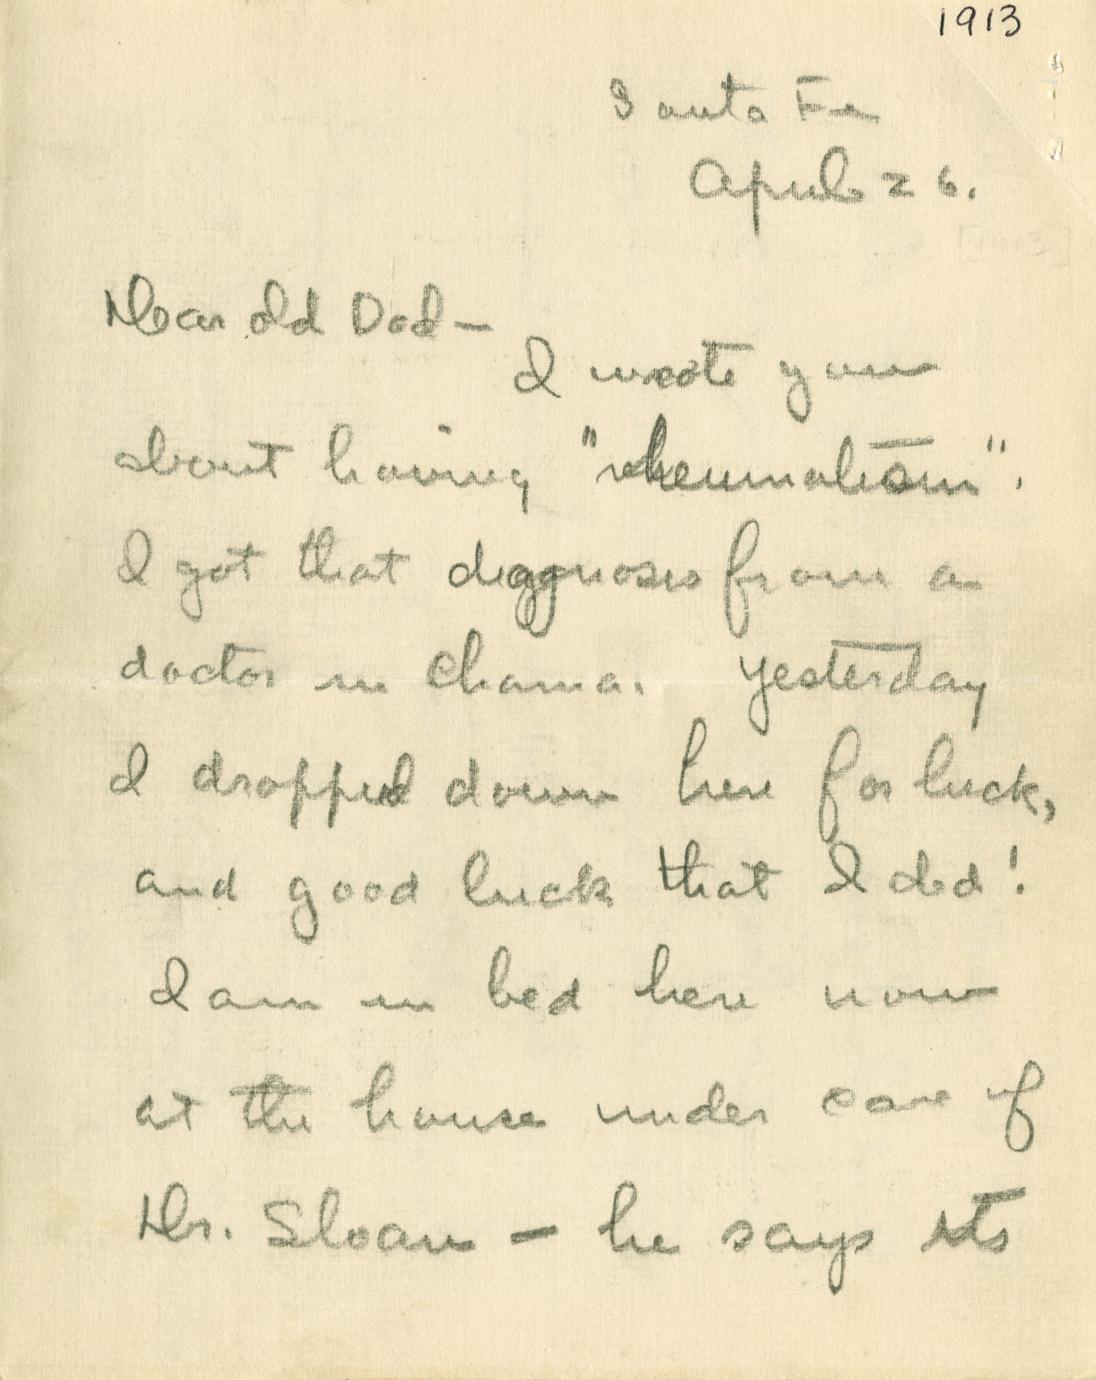 1913
Santa Fe
April 26.
[1913]
Dear old Dad —
I wrote you
about having "rheumatism".
I got that diagnosis from a
doctor in Chama. Yesterday
I dropped down here for luck,
and good luck that I did!
I am in bed here now
at the house under care of
Dr. Sloan — he says its